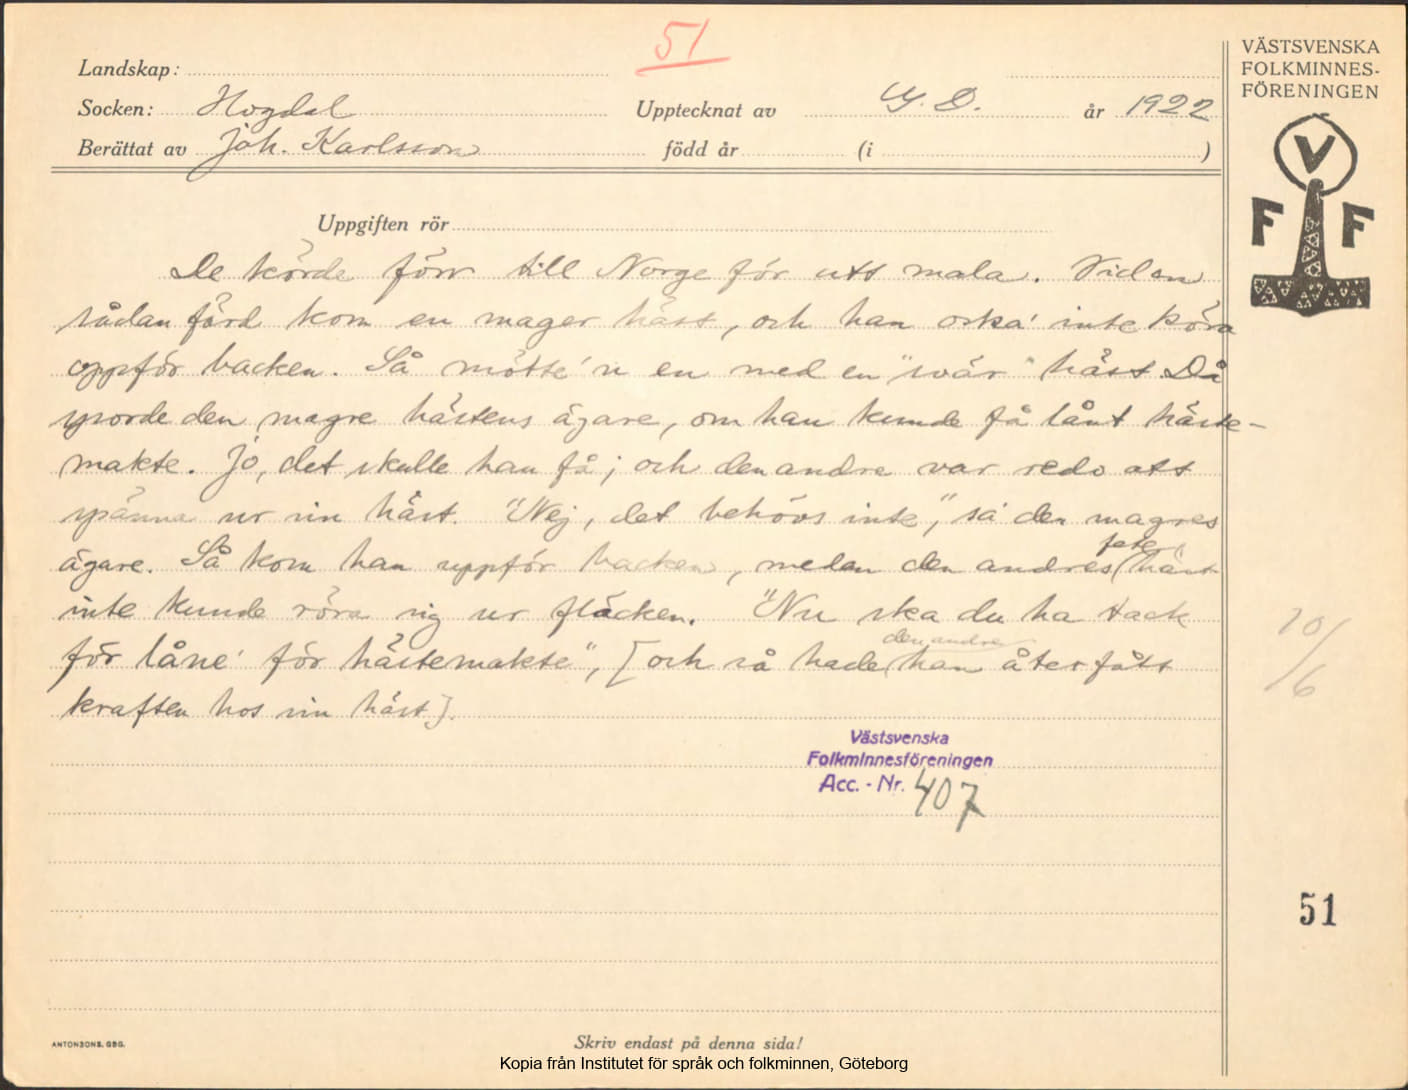 51
Landskap:
Socken: Hogdal Upptecknat av G. D. år 1922
Berättat av Joh. Karlsson född år (i )
VÄSTSVENSKA
FOLKMINNES-
FÖRENINGEN
V
F F
Uppgiften rör
De körde förr till Norge för att mala. Vid en
sådan färd kom en mager häst, och han orka' inte köra
oppför backen. Så mötte 'n en med en "svär" häst. Då
sporde den magre hästens ägare, om han kunde få lånt häste-
makte. Jo, det skulle han få; och den andre var redo att
spänna ur sin häst. "Nej, det behövs inte", sa' den magres
ägare. Så kom han uppför backen, medan den andres fete häst
inte kunde röra sig ur fläcken. "Nu ska du ha tack
för låne' för hästemakte", [och så hade den andre han återfått
kraften hos sin häst].
10/6
Västsvenska
Folkminnesföreningen
Acc. - Nr. 407
51
ANTONSONS. GBG.
Skriv endast på denna sida!
Kopia från Institutet för språk och folkminnen, Göteborg